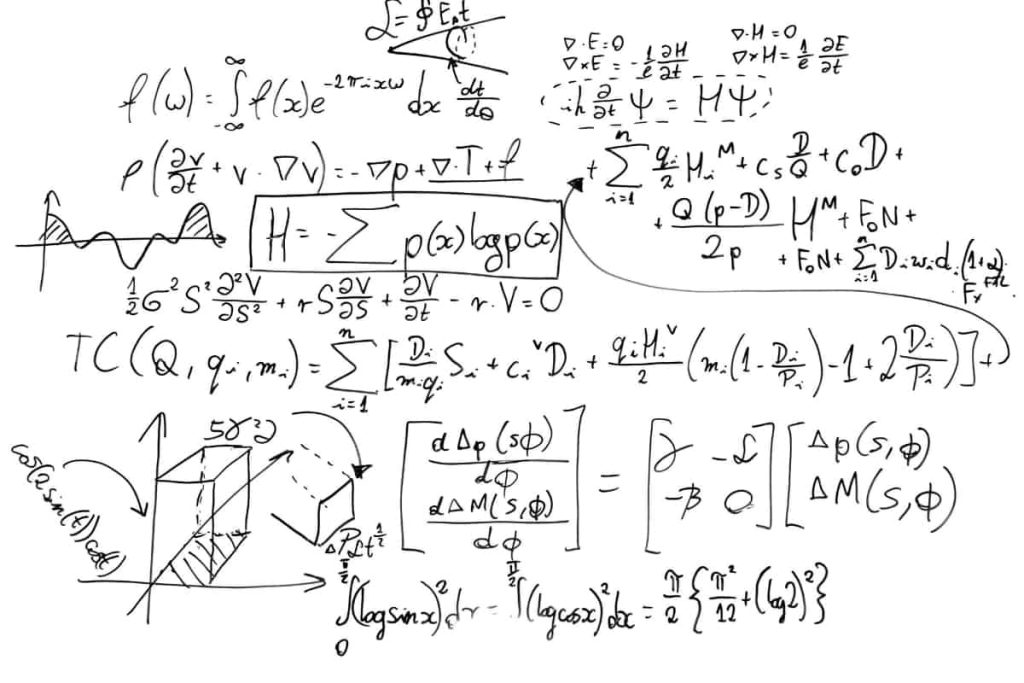 L = ∮ E, t
dt/dθ
∇·E=0
∇×E = -1/c ∂H/∂t
∇·H=0
∇×H = 1/c ∂E/∂t
f(ω) = ∫_{-∞}^{∞} f(x)e^{-2πixω} dx
iħ ∂/∂t Ψ = HΨ
ρ(∂v/∂t + v·∇v) = -∇p + ∇·T + f
+ Σ_{i=1}^{n} q_i/2 H_i^M + C_s D/Q + C_o D +
+ Q(p-D)/2p H^M + F_o N +
+ F_o N + Σ_{i=1}^{n} D_i w_i d_i (1+α)
H = -Σ p(x) log p(x)
1/2 σ²S² ∂²V/∂S² + rS ∂V/∂S + ∂V/∂t - r·V = 0
TC(Q, q_i, m_i) = Σ_{i=1}^{n} [D_i/(m_i q_i) S_i + c_i^v D_i + q_i H_i^v/2 (m_i(1 - D_i/P_i) - 1 + 2 D_i/P_i)] +
[dΔp(sϕ)/dϕ
dΔM(s,ϕ)/dϕ] = [γ -L
-β 0] [Δp(s,ϕ)
ΔM(s,ϕ)
∫_0^{π/2} (log sin x)² dx = ∫^{π/2} (log cos x)² dx = π/2 {π²/12 + (log 2)²}